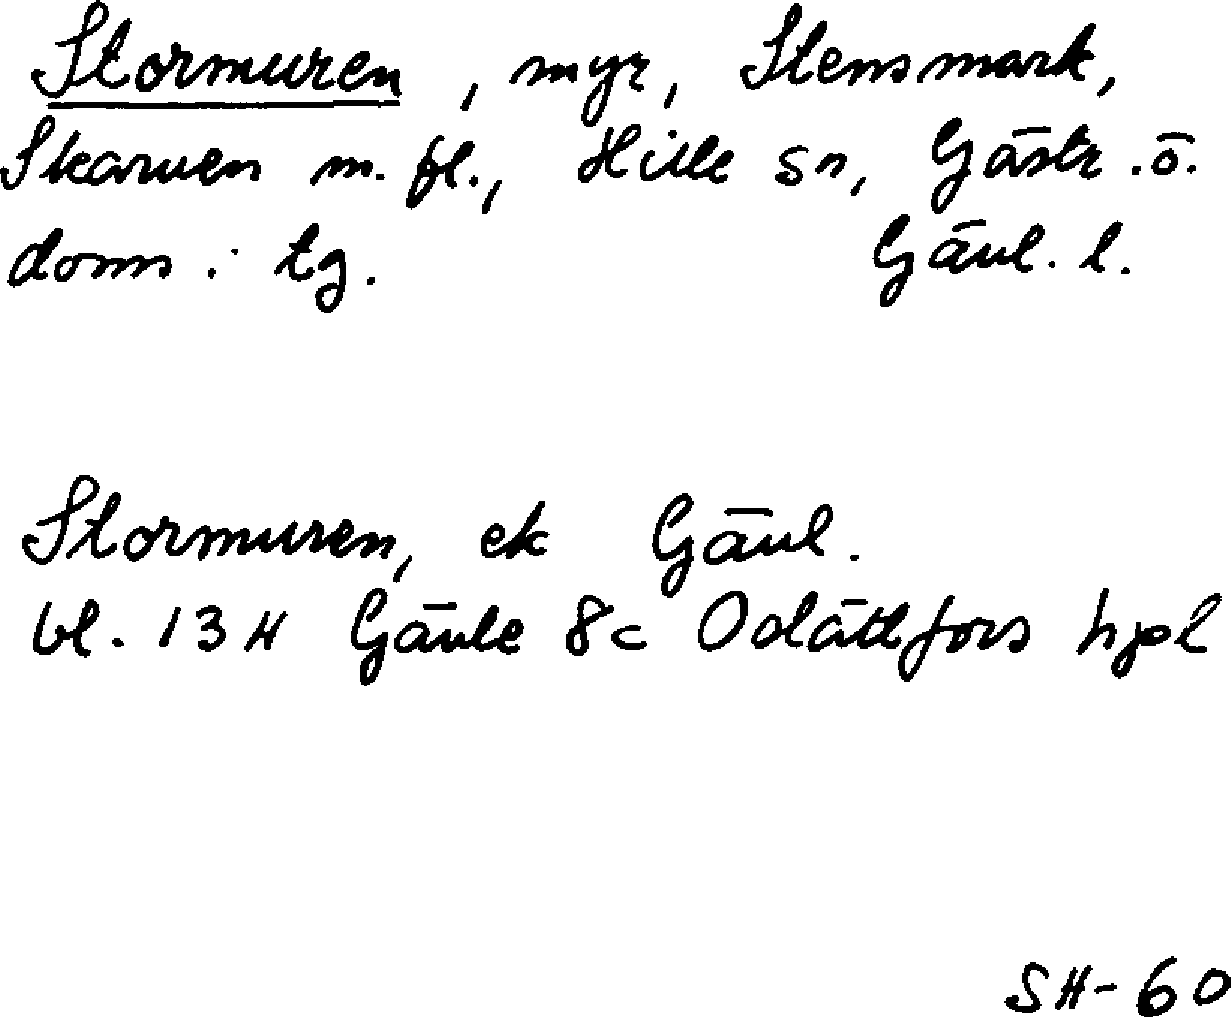 Stormuren, myr, Stensmark,
Skarven m. fl., Hille sn, Gästr. ö.
doms. tg. Gävl. l.
Stormuren, ek Gävl.
bl. 13 H Gävle 8c Oslättfors hpl
SH-60